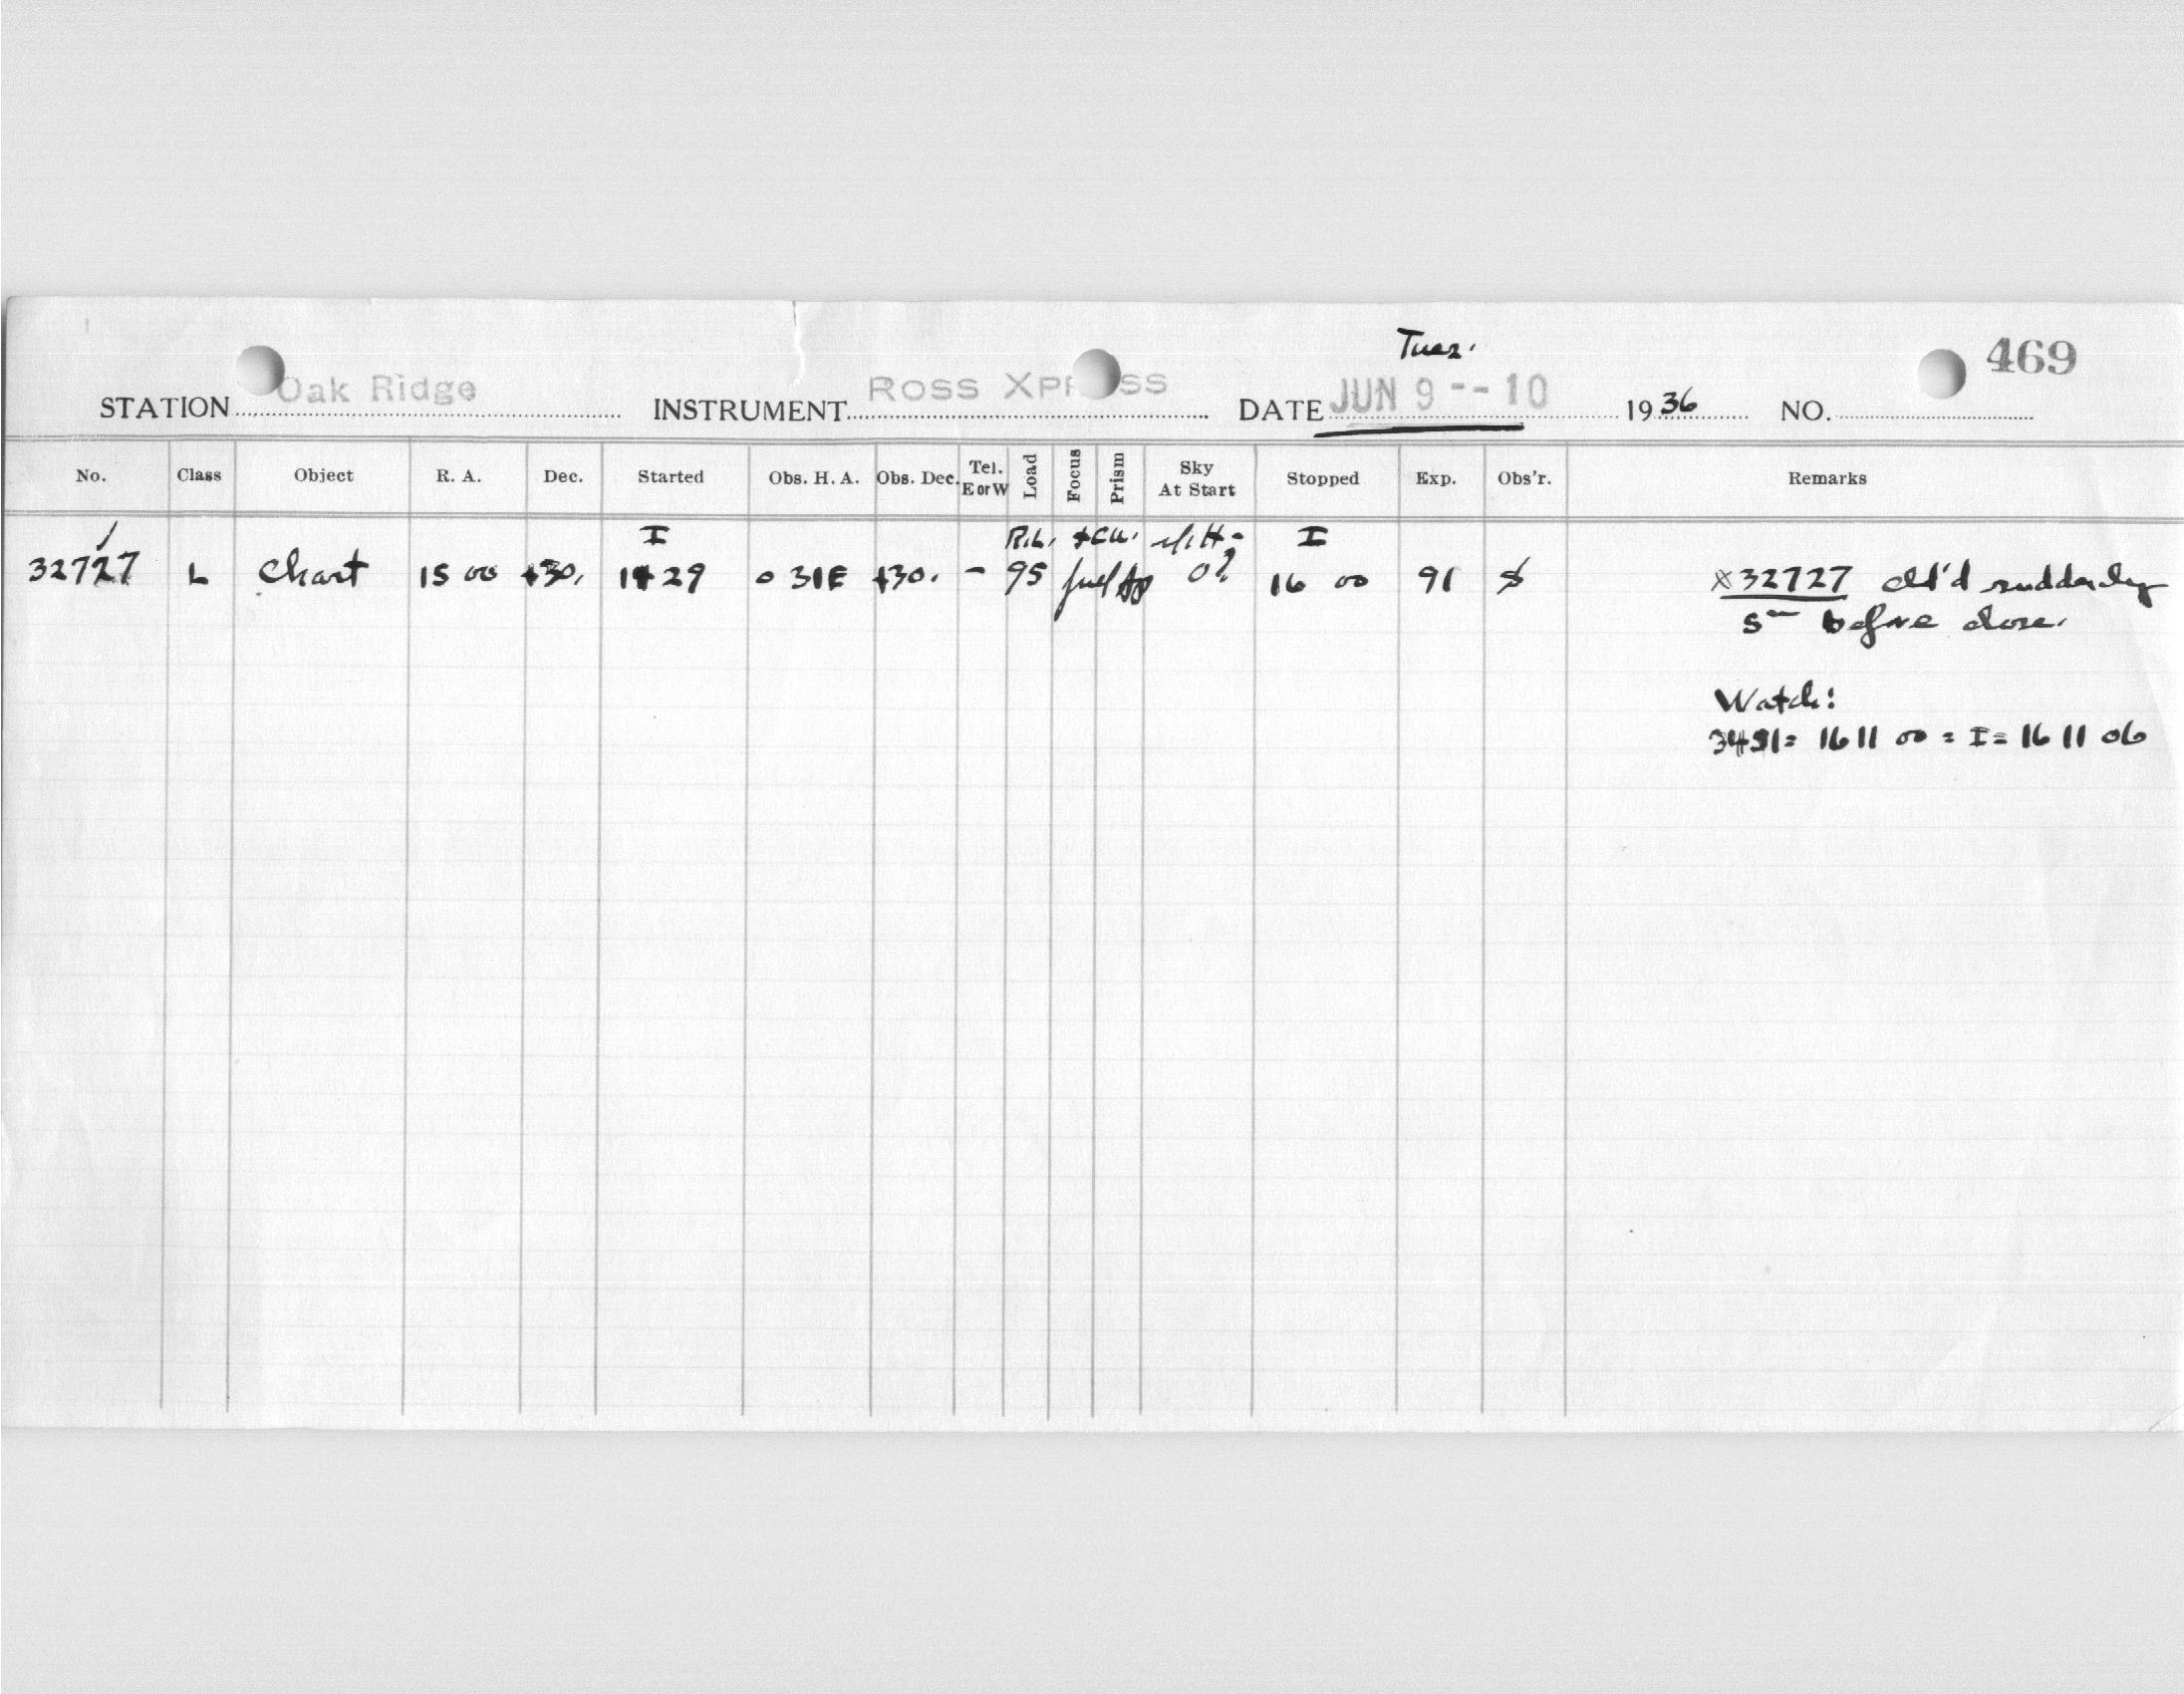 Tues.
469
STATION Oak Ridge INSTRUMENT ROSS XPRESS DATE JUN 9 -- 10 1936 NO.
No. Class Object R. A. Dec. Started Obs. H. A. Obs. Dec. Tel. E or W Load Focus Prism Sky At Start Stopped Exp. Obs'r. Remarks
I I
32727 L Chart 15 00 +30. 14 29 0 31E +30. - 95 0? 16 00 91 x32727 cld'd suddenly
5m before close.
Watch:
3491= 16 11 00 = I = 16 11 06